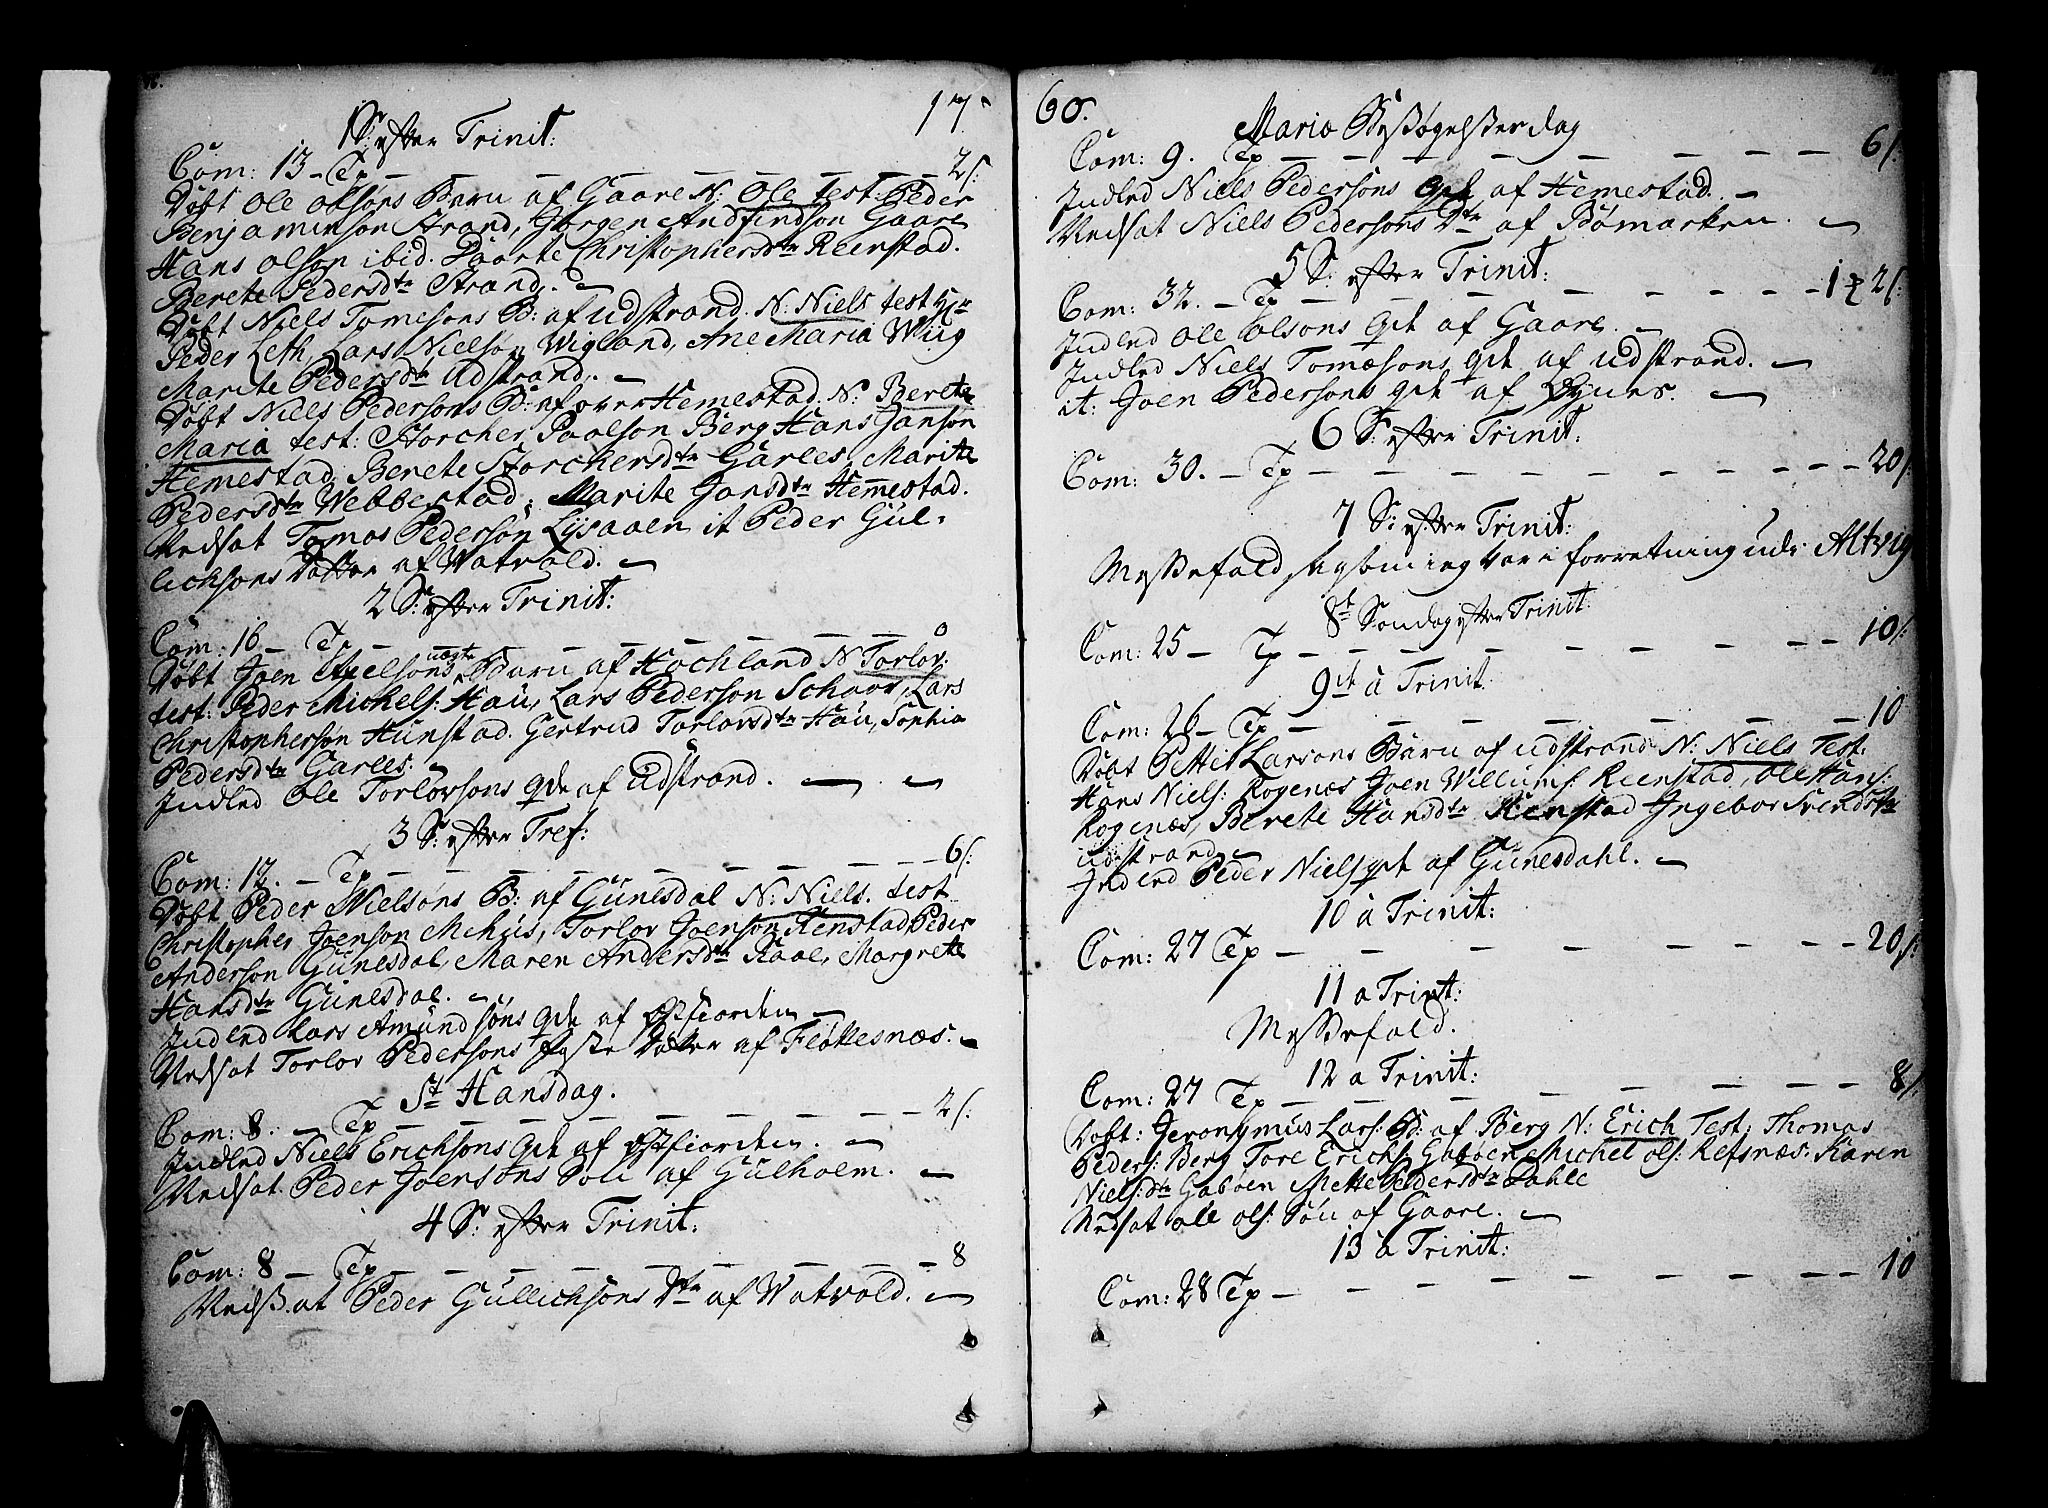 17
1 S: efter Trinit:
Com: 13 – Tp – – – – – – 2 s:
Døbt Ole Olsøns Barn af Gaare N: Ole Test: Peder
Benjaminsøn Strand, Jørgen Andfindsøn Gaare
Hans Olsøn ibid. Paarte Christophersdtr Reenstad.
Berete Pedersdtr Strand.
Døbt Niels Tomesøns B: af udstrand. N: Niels test Hr
Peder Leth, Lars Nielsøn Wigland, Ane Maria Wiig
Marite Pedersdtr Udstrand.
Døbt Niels Pedersøns B: af over Hemestad. N: Berete
Maria test: Storcher Paalsøn Berg Hans Jansøn
Hemestad, Berete Storckersdtr Garees, Marite
Pedersdtr Webbestad, Marite Jonsdtr Hemmestad.
Vedsat Tomas Pedersøn Lysaaen it Peder Gul-
lichsøns Datter af Watvold.
2 S: efter Trinit:
Com: 16 – Tp – – – – – 0
Døbt Joen Axelsøns uægte Barn af Hochland N Torlov:
test: Peder Michels: Hau, Lars Pedersøn Schaar, Lars
Christophersøn Hunstad. Gertrud Torlovsdtr Hau, Sophia
Pedersdtr Garees.
Indled Ole Torlovsøns qde af Udstrand.
3 S: efter Tref:
Com: 12. – Tp – – – – – – 6 s:
Døbt Peder Nielsøns B: af Gunesdal N: Niels. test
Christopher Joensøn Mehus, Torlov Joensøn Renstad, Peder
Andersøn Gunesdal, Maren Andersdtr Kaae, Margrete
Hansdtr Gunesdal.
Indled Lars Amundsøns qde af Østfiorden
Vedsat Torlov Pedersøns Datter af Fløttesnæs.
St Hansdag.
Com: 8. – Tp – – – – – – 2 s:
Indled Niels Erichsøns qde af Østfiorden.
Vedsat Peder Joensøns Søn af Gulholm.
4 S: efter Trinit:
Com: 8 – Tp – – – – – – 8
Vedsat Peder Gullichsøns Dtr af Watvold.
60.
Mariæ Besøgelses dag
Com: 9. Tp – – – – – – 6 s:
Indled Niels Pedersøns qde af Hemestad.
Vedsat Niels Pedersøns Dtr af Bømarken.
5 S: efter Trinit:
Com: 32. – Tp – – – – – – 1 2 s:
Indled Ole Olsøns qde af Gaare.
Indled Niels Tomæsøns qde af udstrand.
it: Joen Pedersøns qde af Bynes.
6 S: efter Trinit:
Com: 30. – Tp – – – – – – 20 s:
7 S: efter Trinit:
Messefald saasom ieg var i forretning ude i Altvig
8de Søndag efter Trinit:
Com: 25 – Tp – – – – – – 10 s:
9de a Trinit
Com: 26 – Tp – – – – – – 10
Døbt Petter Larsøns Barn af udstrand N: Niels Test:
Hans Niels: Rogenæs Joen Willums: Reenstad, Ole Hans:
Rogenæs, Berete Hansdtr Renstad Ingebor Svendsdtr
udstrand
Indled Peder Niels qde af Gunesdahl.
10 a Trinit:
Com: 27 Tp – – – – – – 20 s:
11 a Trinit:
Messefald.
12 a Trinit:
Com: 27 Tp – – – – – – 8 s:
Døbt: Jeronymus Lars: B: af Berg N: Erich Test: Thomas
Peders: Berg Tore Erichs: Gabøen Michel Ols: Refsnæs: Karen
Niels:dtr Gabøen Mette Pedersdtr Dahle
Vedsat Ole Ols: Søn af Gaare.
13 a Trinit:
Com: 28 Tp – – – – – – 10